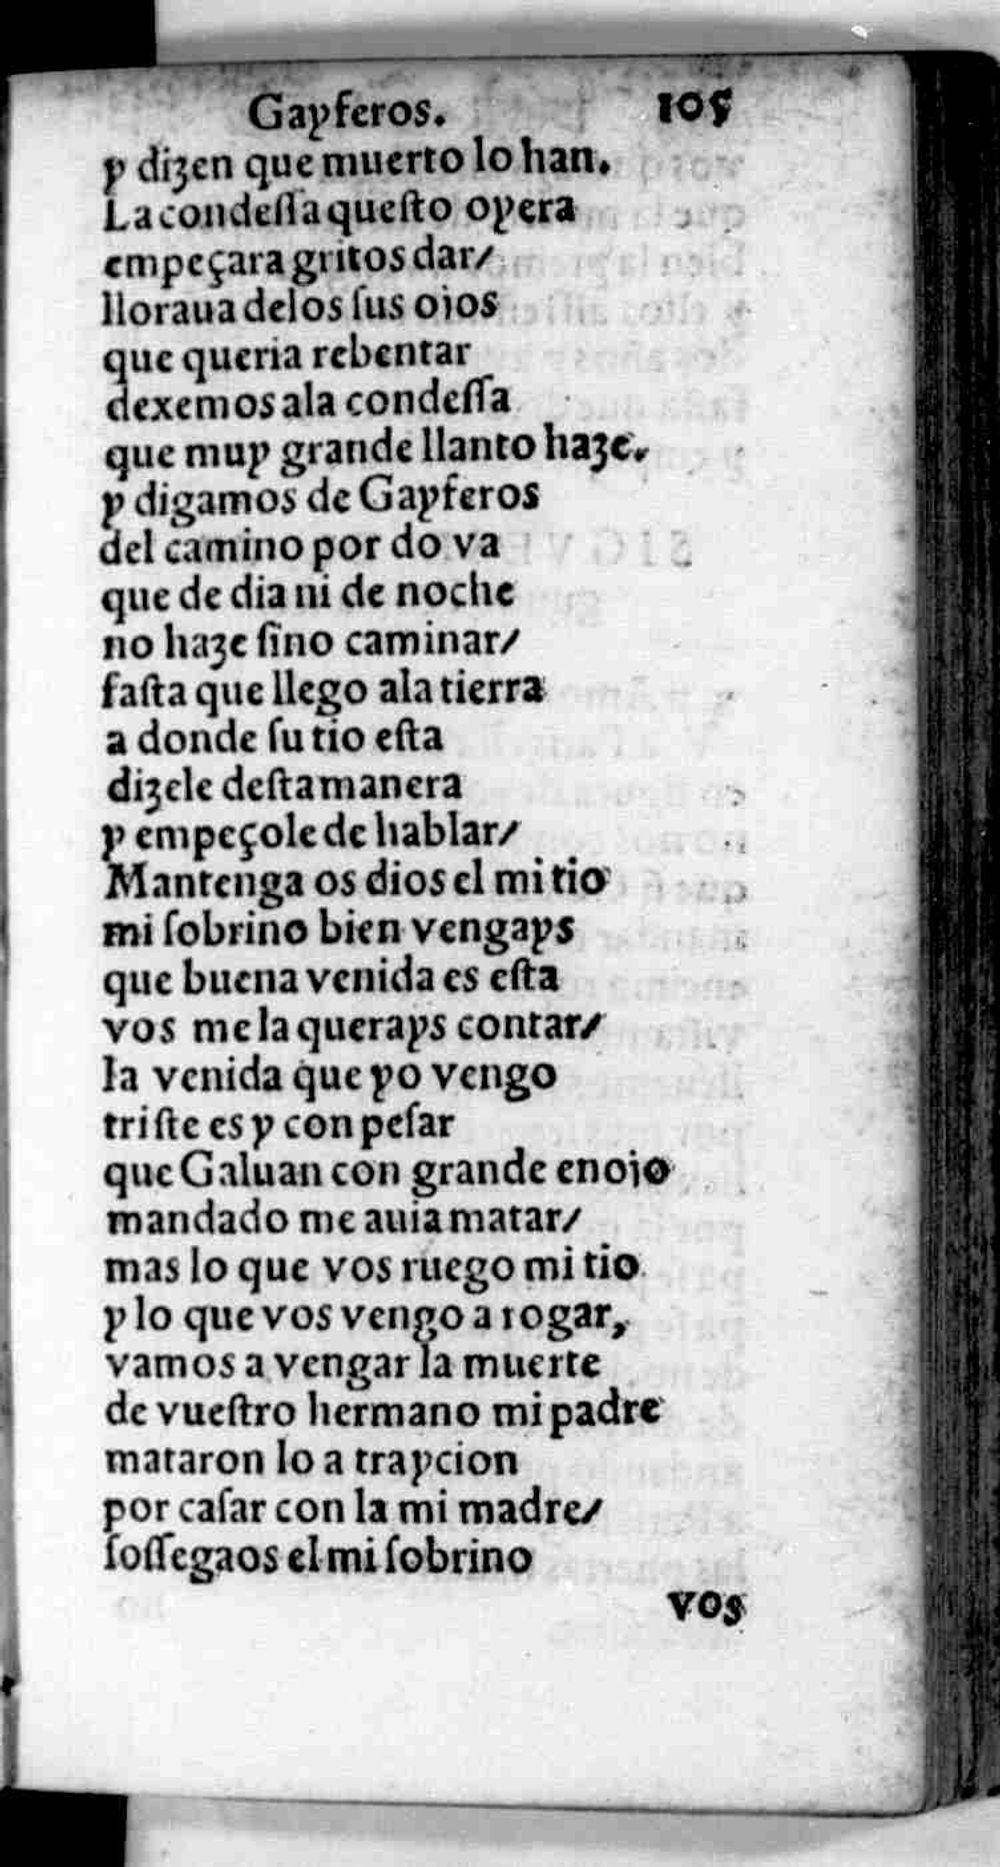 Gayferos. 105
y dizen que muerto lo han.
La condessa questo oyera
empeçara gritos dar/
lloraua delos sus oios
que queria rebentar
dexemos ala condessa
que muy grande llanto haze.
y digamos de Gayferos
del camino por do va
que de dia ni de noche
no haze sino caminar/
fasta que llego ala tierra
a donde su tio esta
dizele desta manera
y empeçole de hablar/
Mantenga os dios el mi tio
mi sobrino bien vengays
que buena venida es esta
vos me la querays contar/
la venida que yo vengo
triste es y con pesar
que Galuan con grande enoio
mandado me auia matar/
mas lo que vos ruego mi tio
y lo que vos vengo a rogar,
vamos a vengar la muerte
de vuestro hermano mi padre
mataron lo a traycion
por casar con la mi madre/
sossegaos el mi sobrino
vos